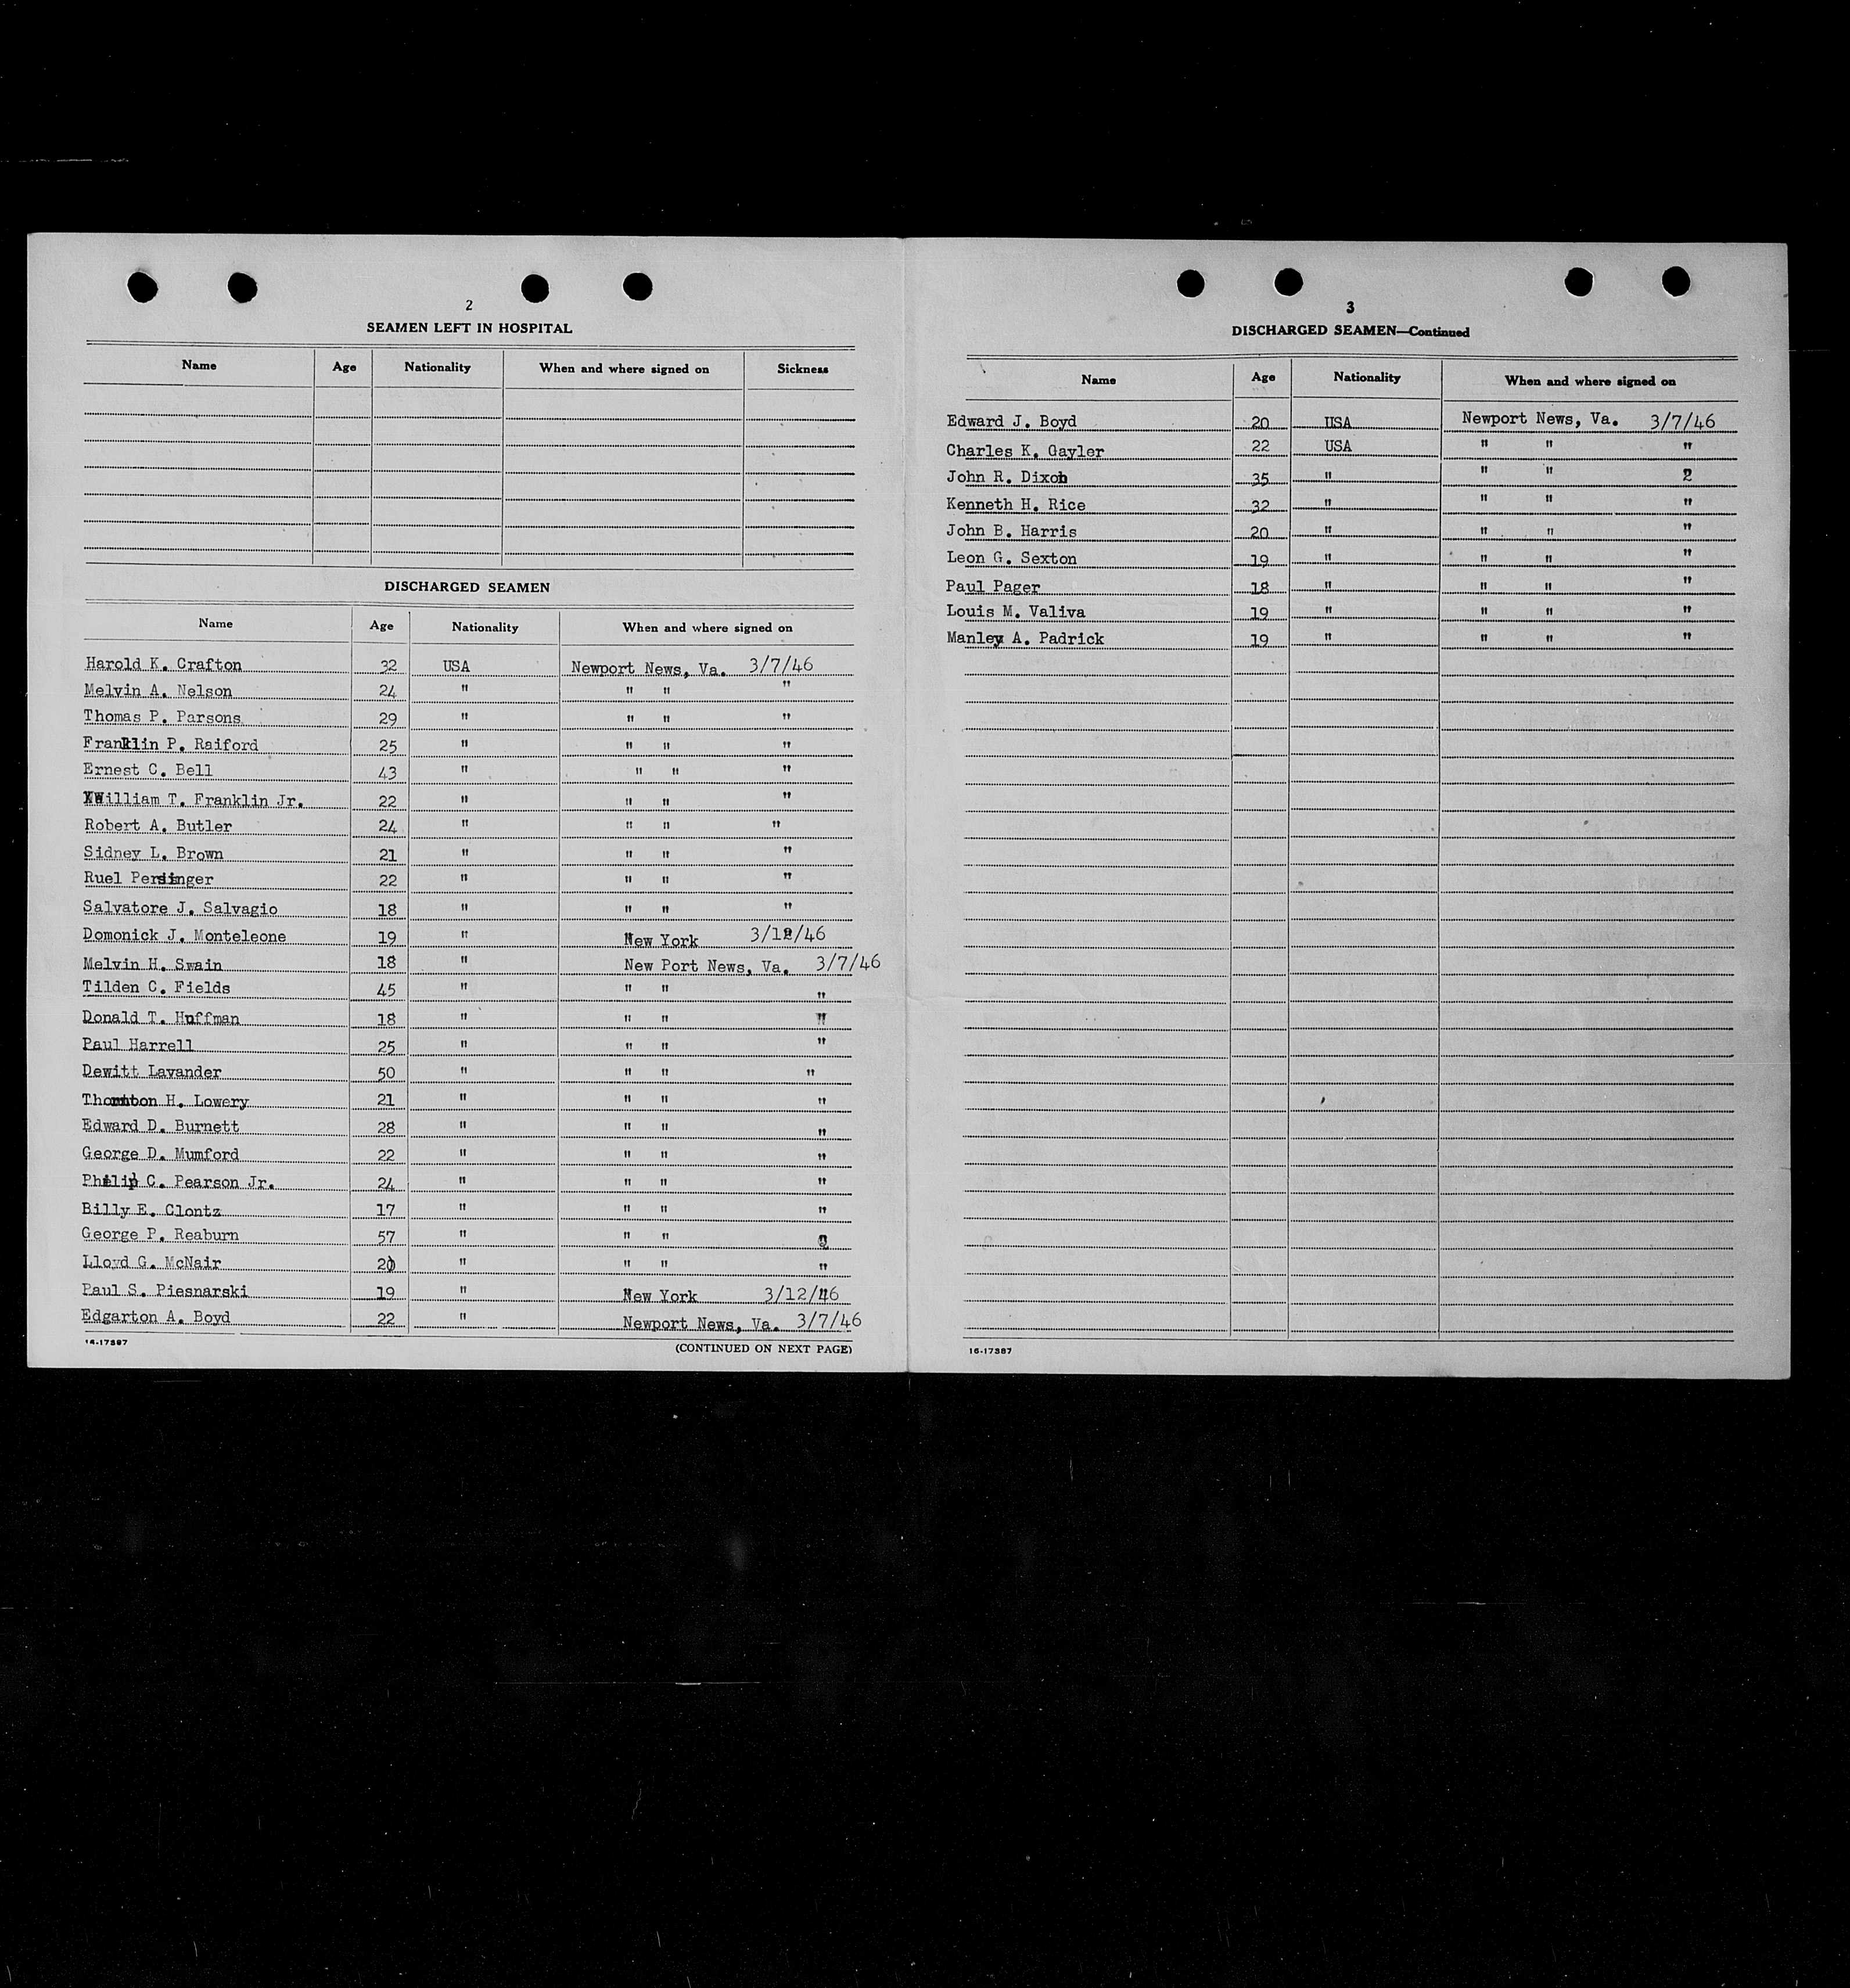 2
SEAMEN LEFT IN HOSPITAL
Name Age Nationality When and where signed on Sickness
DISCHARGED SEAMEN
Name Age Nationality When and where signed on
Harold K. Crafton 32 USA Newport News, Va. 3/7/46
Melvin A. Nelson 24 " " " "
Thomas P. Parsons 29 " " " "
Franklin P. Raiford 25 " " " "
Ernest C. Bell 43 " " " "
William T. Franklin Jr. 22 " " " "
Robert A. Butler 24 " " " "
Sidney L. Brown 21 " " " "
Ruel Persinger 22 " " " "
Salvatore J. Salvagio 18 " " " "
Domonick J. Monteleone 19 " New York 3/12/46
Melvin H. Swain 18 " New Port News, Va. 3/7/46
Tilden C. Fields 45 " " " "
Donald T. Huffman 18 " " " "
Paul Harrell 25 " " " "
Dewitt Lavander 50 " " " "
Thornton H. Lowery 21 " " " "
Edward D. Burnett 28 " " " "
George D. Mumford 22 " " " "
Philip C. Pearson Jr. 24 " " " "
Billy E. Clontz 17 " " " "
George P. Reaburn 57 " " "
Lloyd G. McNair 20 " " " "
Paul S. Piesnarski 19 " New York 3/12/46
Edgarton A. Boyd 22 " Newport News, Va. 3/7/46
16-17387
(CONTINUED ON NEXT PAGE)
3
DISCHARGED SEAMEN—Continued
Name Age Nationality When and where signed on
Edward J. Boyd 20 USA Newport News, Va. 3/7/46
Charles K. Gayler 22 USA " " "
John R. Dixon 35 " " " 2
Kenneth H. Rice 32 " " " "
John B. Harris 20 " " " "
Leon G. Sexton 19 " " " "
Paul Pager 18 " " " "
Louis M. Valiva 19 " " " "
Manley A. Padrick 19 " " " "
16-17387